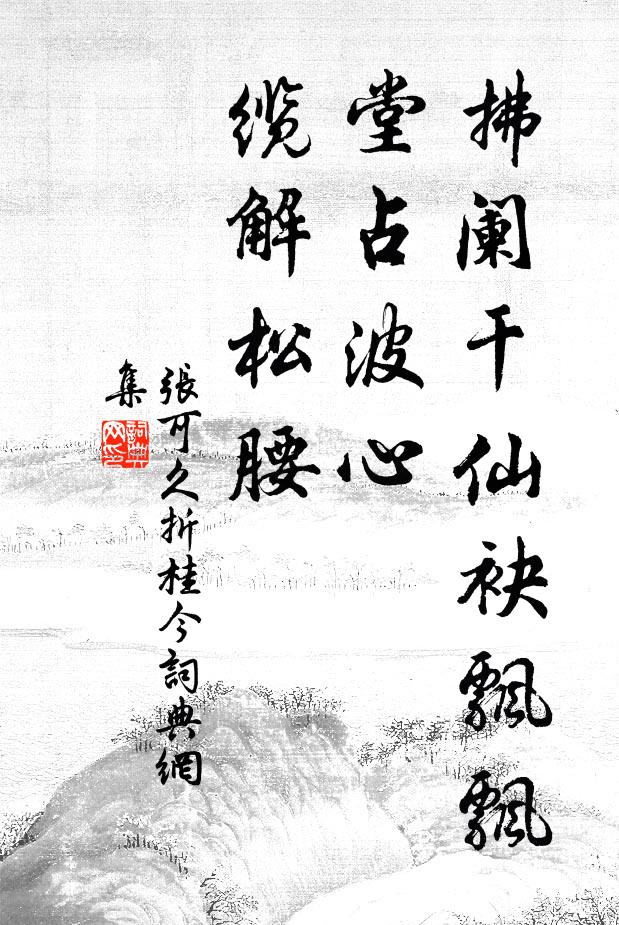 拂阑干仙袂飘飘
堂占波心
缆解松腰
張可久折桂令詞典網
集